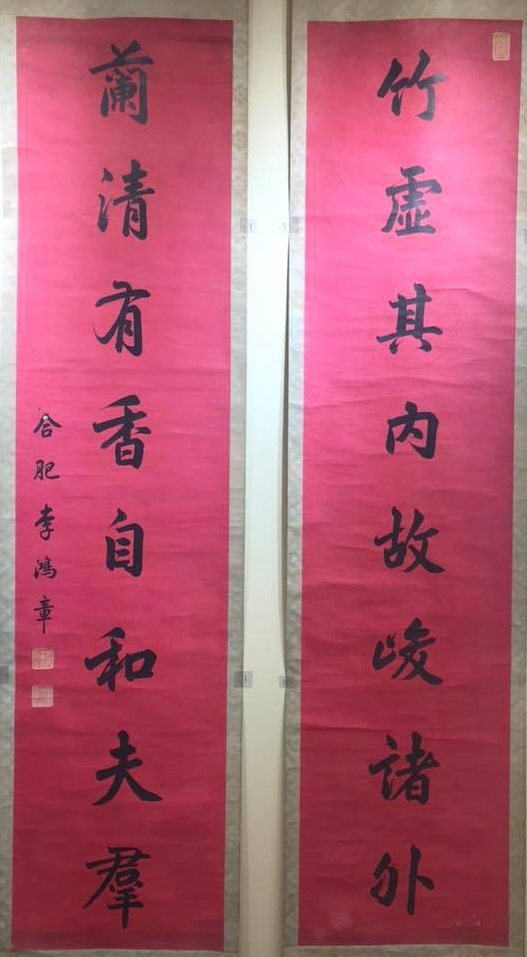 竹虛其内故峻諸外
蘭清有香自和夫羣
合肥李鴻章